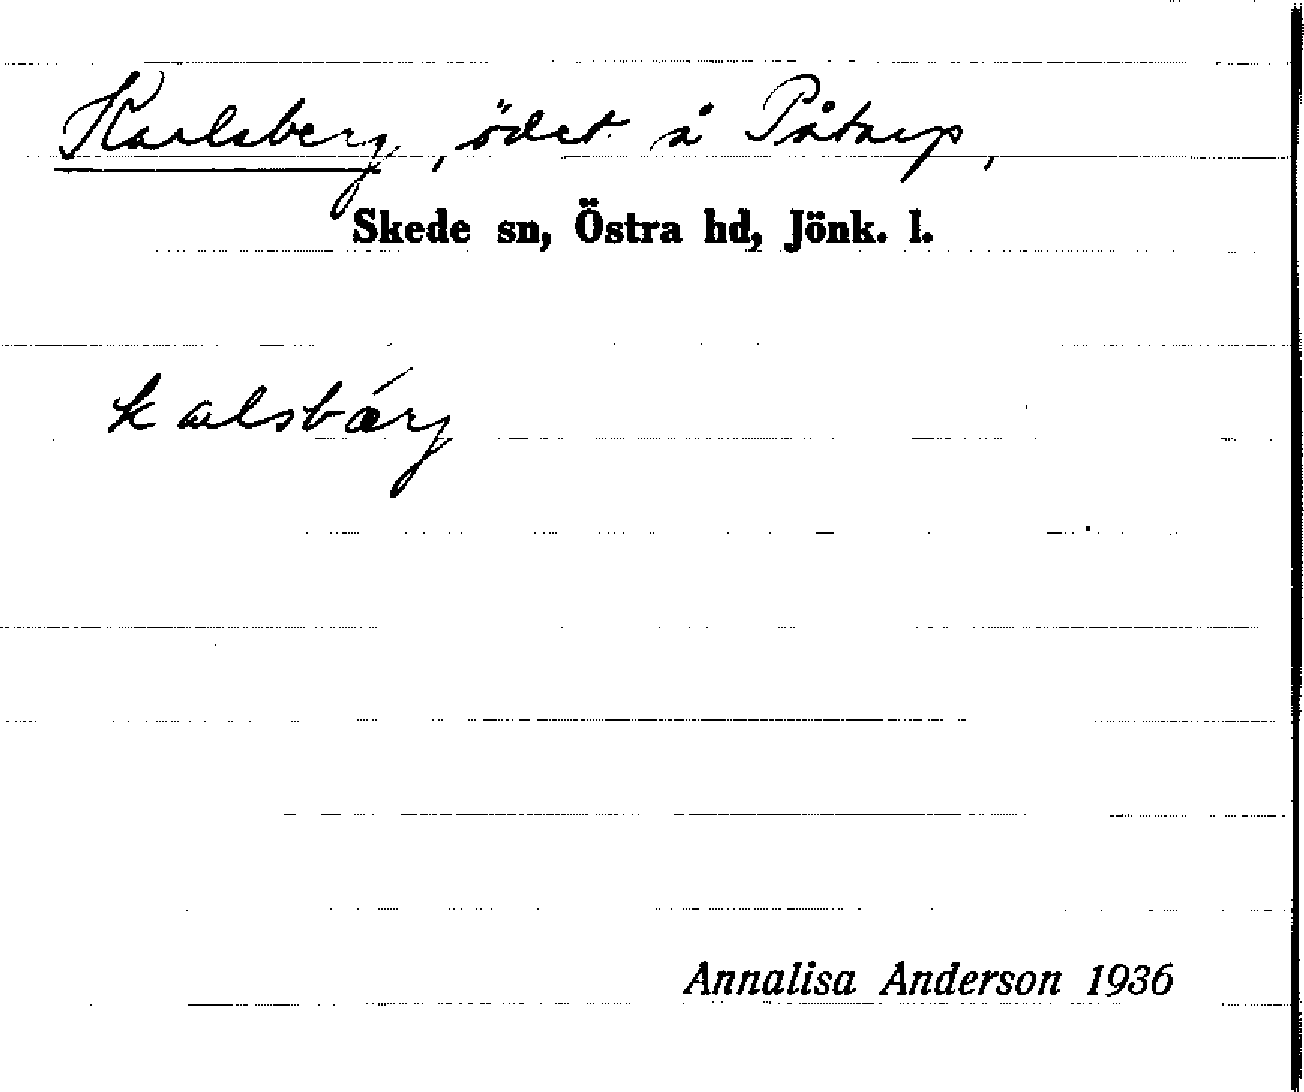 Karlsberg, ödet. å Påtarp,
Skede sn, Östra hd, Jönk. l.
kalsbárj
Annalisa Anderson 1936